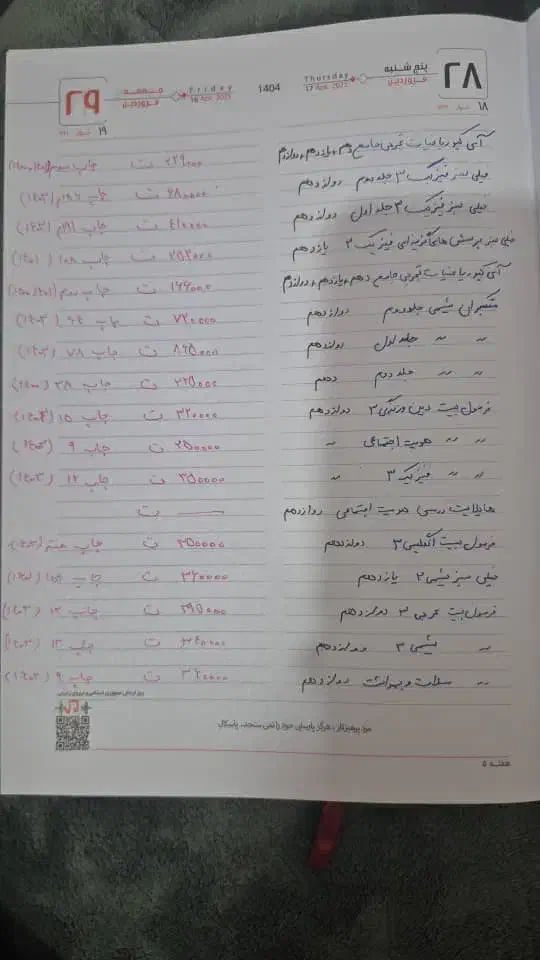 ۲۸ پنج شنبه فروردین Thursday 17 Apr. 2025 1404 Friday 18 Apr. 2025 جمعه فروردین ۲۹
۱۸ شوال
۱۹ شوال
آی کیو ریاضیات تجربی جامع دهم، یازدهم، دوازدهم ۲۲۹۰۰۰ ت چاپ سوم
خیلی سبز فیزیک ۳ جلد دوم دوازدهم ۶۸۰۰۰۰ ت چاپ (۱۴۰۳)
خیلی سبز فیزیک ۳ جلد اول دوازدهم ۶۱۰۰۰۰ ت چاپ (۱۴۰۳)
خیلی سبز پرسش های چهارگزینه ای فیزیک ۲ یازدهم ۲۵۲۰۰۰ ت چاپ ۱۰۸
آی کیو ریاضیات تجربی جامع دهم، یازدهم، دوازدهم ۱۶۶۰۰۰ ت چاپ
مبتکران شیمی جلد دوم دوازدهم ۷۲۰۰۰۰ ت چاپ (۱۴۰۳)
〃 〃 جلد اول دوازدهم ۸۶۵۰۰۰ ت چاپ ۷۸ (۱۴۰۳)
〃 〃 جلد دوم دهم ۲۲۵۰۰۰ ت چاپ ۳۸
فرمول بیست دین و زندگی ۳ دوازدهم ۳۲۰۰۰۰ ت چاپ ۱۵
〃 〃 هویت اجتماعی 〃 ۲۵۰۰۰۰ ت چاپ ۹ (۱۴۰۳)
〃 〃 فیزیک ۳ 〃 ۳۵۰۰۰۰ ت چاپ ۱۲ (۱۴۰۳)
هایلایت درسی هویت اجتماعی دوازدهم — ت
فرمول بیست انگلیسی ۳ دوازدهم ۳۵۰۰۰۰ ت چاپ هفتم (۱۴۰۳)
خیلی سبز شیمی ۲ یازدهم ۳۶۰۰۰۰ ت چاپ
فرمول بیست عربی ۳ دوازدهم ۲۹۵۰۰۰ ت چاپ ۱۳ (۱۴۰۳)
〃 شیمی ۳ دوازدهم ۳۶۰۰۰۰ ت چاپ ۱۳ (۱۴۰۳)
〃 سلامت و بهداشت دوازدهم ۳۲۰۰۰۰ ت چاپ ۹ (۱۴۰۳)
روز ارتش جمهوری اسلامی و نیروی زمینی
مرد پرهیزکار، هرگز پارسایی خود را نمی سنجد. پاسکال
هفته ۵